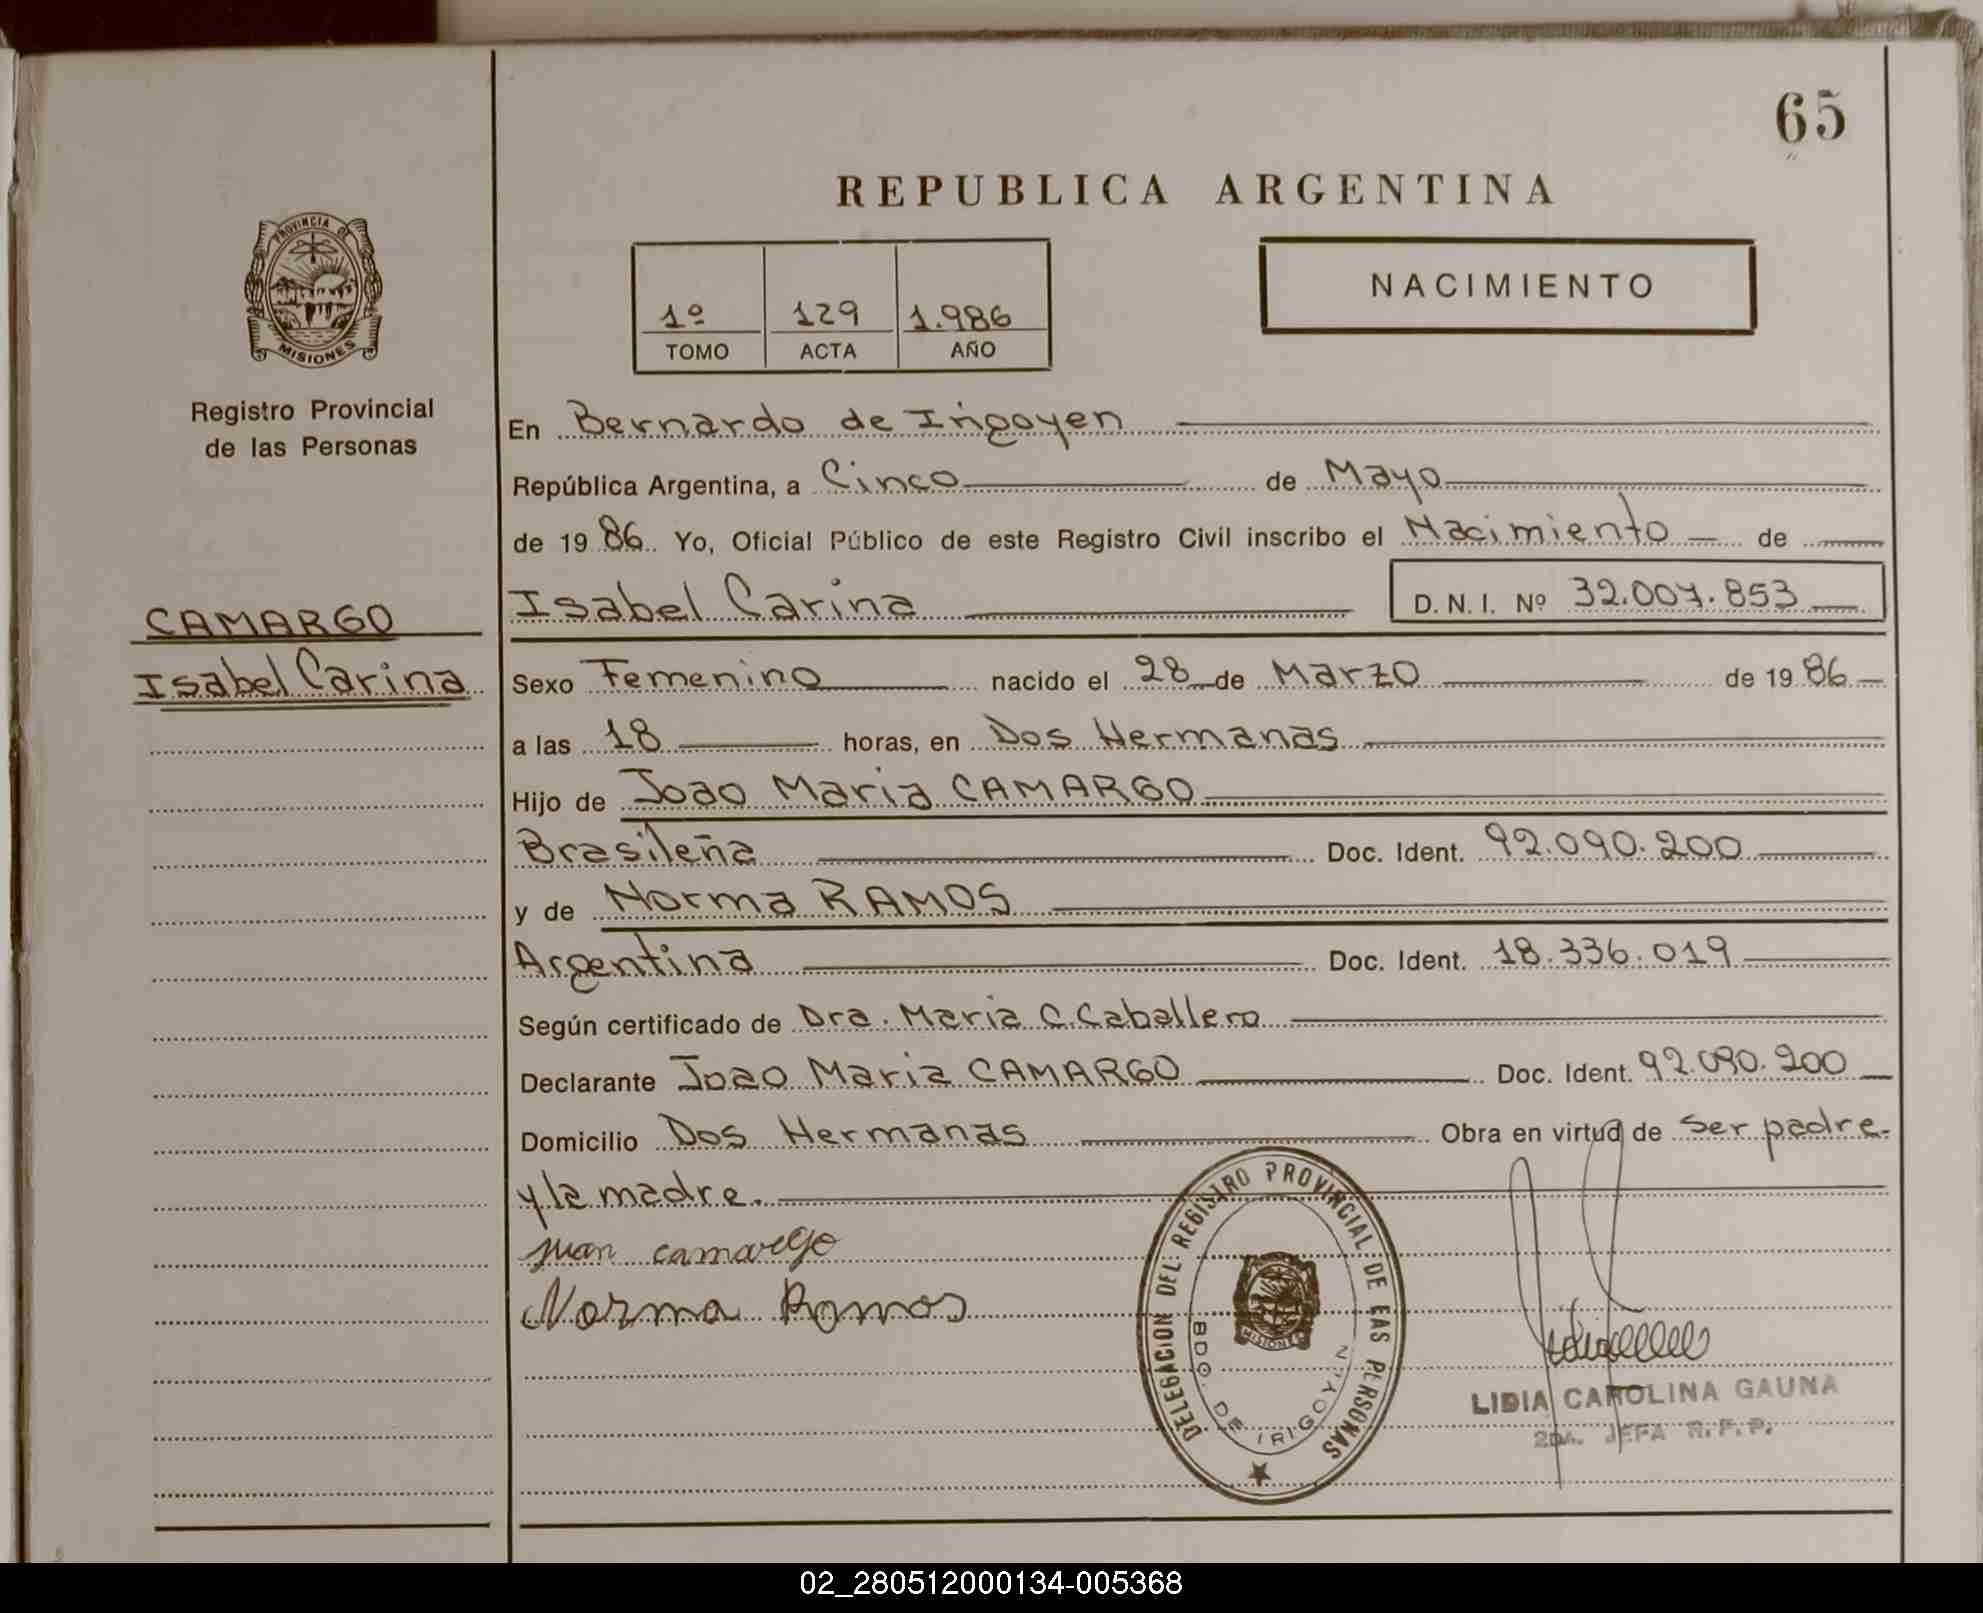 65
REPUBLICA ARGENTINA
PROVINCIA DE
MISIONES
1º 129 1.986
TOMO ACTA AÑO
NACIMIENTO
Registro Provincial
de las Personas
En Bernardo de Irigoyen
República Argentina, a Cinco de Mayo
de 19 86 Yo, Oficial Público de este Registro Civil inscribo el Nacimiento de
CAMARGO
Isabel Carina
Isabel Carina D. N. I. Nº 32.007.853
Sexo Femenino nacido el 28 de Marzo de 19 86
a las 18 horas, en Dos Hermanas
Hijo de Joao Maria CAMARGO
Brasileña Doc. Ident. 92.090.200
y de Norma RAMOS
Argentina Doc. Ident. 18.336.019
Según certificado de Dra. Maria C. Caballero
Declarante Joao Maria CAMARGO Doc. Ident. 92.090.200
Domicilio Dos Hermanas Obra en virtud de ser padre
y la madre.
juan camargo
Norma Ramos
DELEGACION DEL REGISTRO PROVINCIAL DE LAS PERSONAS
MISIONES
BDO. DE IRIGOYEN
LIDIA CAROLINA GAUNA
2DA. JEFA R.P.P.
02_280512000134-005368